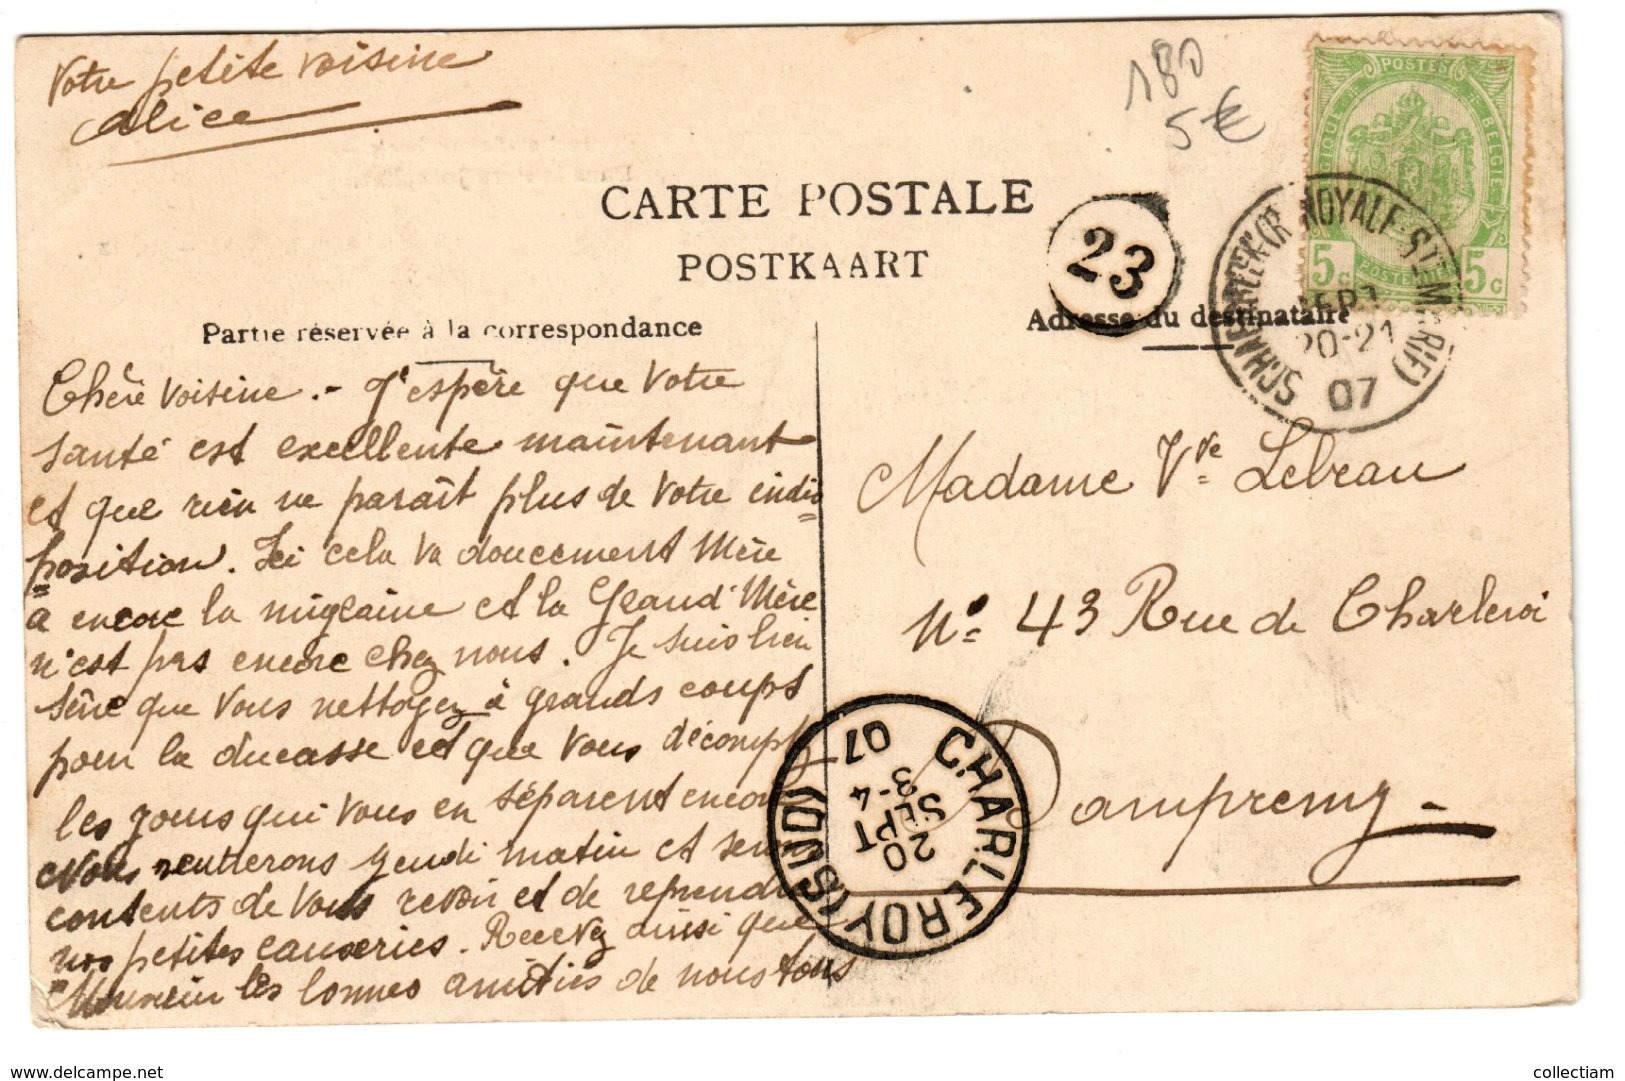 Votre petite voisine
Alice
180
5€
POSTES
BELGIQUE
BELGIE
5c
POSTERIJEN
5c
CARTE POSTALE
POSTKAART
23
SCHAERBEEK (R. ROYALE-STE MARIE)
SEPT
20-21
07
Partie réservée à la correspondance
Adresse du destinataire
Chère Voisine.- J'espère que Votre
santé est excellente maintenant
et que rien ne paraît plus de Votre indis=
=position. Ici cela va doucement Mère
a encore la migraine et la Grand'Mère
n'est pas encore chez nous. Je suis bien
sûre que Vous nettoyez à grands coups
pour la ducasse et que Vous décomptez
les jours qui Vous en séparent encore
Nous rentrerons jeudi matin et serons
contents de Vous revoir et de reprendre
nos petites causeries. Recevez ainsi que
Monsieur les bonnes amitiés de nous tous
Madame Vve Lebeau
No 43 Rue de Charleroi
Dampremy
CHARLEROY (SUD)
2 SEPT
3-4
07
delcampe.net
collectiam